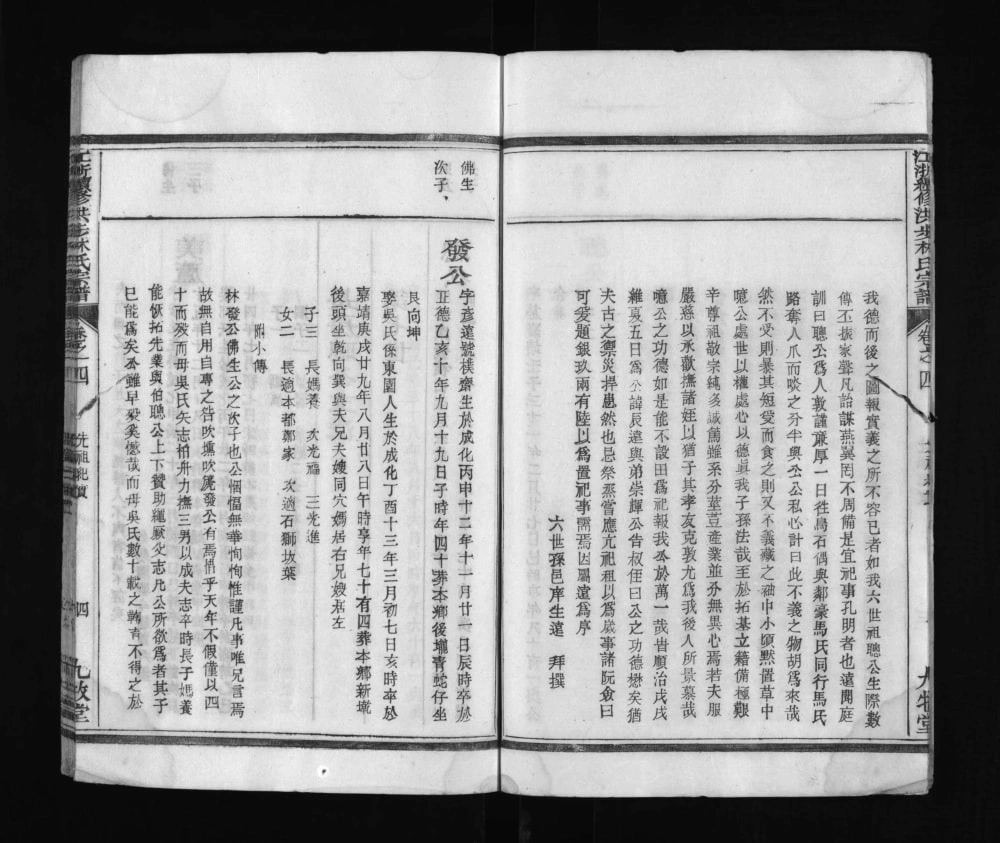 江浙續修洪步林氏宗譜
卷之一四
我德而後之圖報實義之所不容已者如我六世祖聰公生際數
傳丕振家聲凡詒謀燕翼罔不周備是宜祀事孔明者也遠聞庭
訓曰聰公爲人敦謹廉厚一日往烏石偶與鄰豪馬氏同行馬氏
路奪人爪而啖之分半與公公私心計曰此不義之物胡爲來哉
然不受則暴其短受而食之則又不義藏之袖中小頃黙置草中
噫公處世以權處心以德眞我子孫法哉至於拓基立籍備極艱
辛尊祖敬宗純多誠篤雖系分莖荳產業並分無異心焉若夫服
嚴慈以承歡撫諸姪以猶子其孝友克敦尤爲我後人所景慕哉
噫公之功德如是能不設田爲祀報我公於萬一哉昔順治戊戌
維夏五日爲公諱辰遠與弟崇輝公告叔侄曰公之功德懋矣猶
夫古之禦災捍患然也忌祭烝嘗應亢祀租以爲歲事諸阮僉曰
可爰題銀玖兩有陸以爲置祀事需焉因屬遠爲序
六世孫邑庠生遠 拜撰
佛生
次子
發公
字彥遠號樸齋生於成化丙申十二年十一月廿一日辰時卒於
正德乙亥十年九月十九日子時年四十葬本鄉後壠青蛇仔坐
艮向坤
娶吳氏係東園人生於成化丁酉十三年三月初七日亥時卒於
嘉靖庚戌廿九年八月廿八日午時享年七十有四葬本鄉新墘
後頭坐乾向巽與夫兄夫嫂同穴媽居右兄嫂居左
子三 長媽養 次光福 三光進
女二 長適本都鄭家 次適石獅坂葉
附小傳
林發公佛生公之次子也公悃愊無華恂恂惟謹凡事唯兄言焉
故無自用自專之咎吹壎吹篪發公有焉惜乎天年不假僅以四
十而歿而母吳氏矢志柏舟力撫三男以成夫志卒時長子媽養
能恢拓先業與伯聰公上下贊助繩厥父志凡公所欲爲者其子
已能爲矣公雖早歿奚憾哉而母吳氏數十載之講青不得之於
江浙續修洪步林氏宗譜
卷之一四
先祖紀實
四
九牧堂